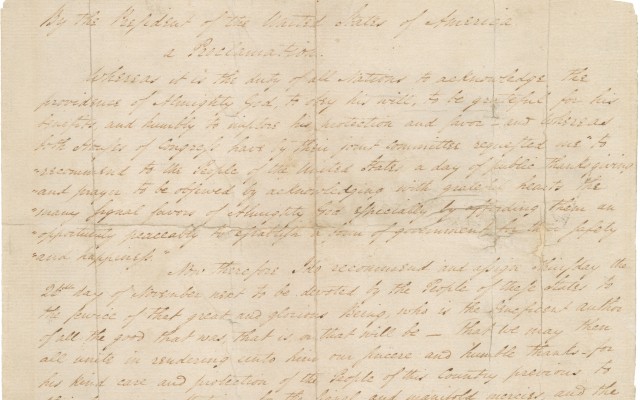 By the President of the United States of America
a Proclamation.
Whereas it is the duty of all Nations to acknowledge the
providence of Almighty God, to obey his will, to be grateful for his
benefits, and humbly to implore his protection and favor – and whereas
both Houses of Congress have by their joint Committee requested me "to
"recommend to the People of the United States a day of public thanksgiving
"and prayer to be observed by acknowledging with grateful hearts the
"many signal favors of Almighty God especially by affording them an
"opportunity peaceably to establish a form of government for their safety
"and happiness."
Now therefore I do recommend and assign Thursday the
26th day of November next to be devoted by the People of these States to
the service of that great and glorious Being, who is the beneficent author
of all the good that was, that is, or that will be – that we may then
all unite in rendering unto him our sincere and humble thanks – for
his kind care and protection of the People of this Country previous to
and manifold mercies, and the